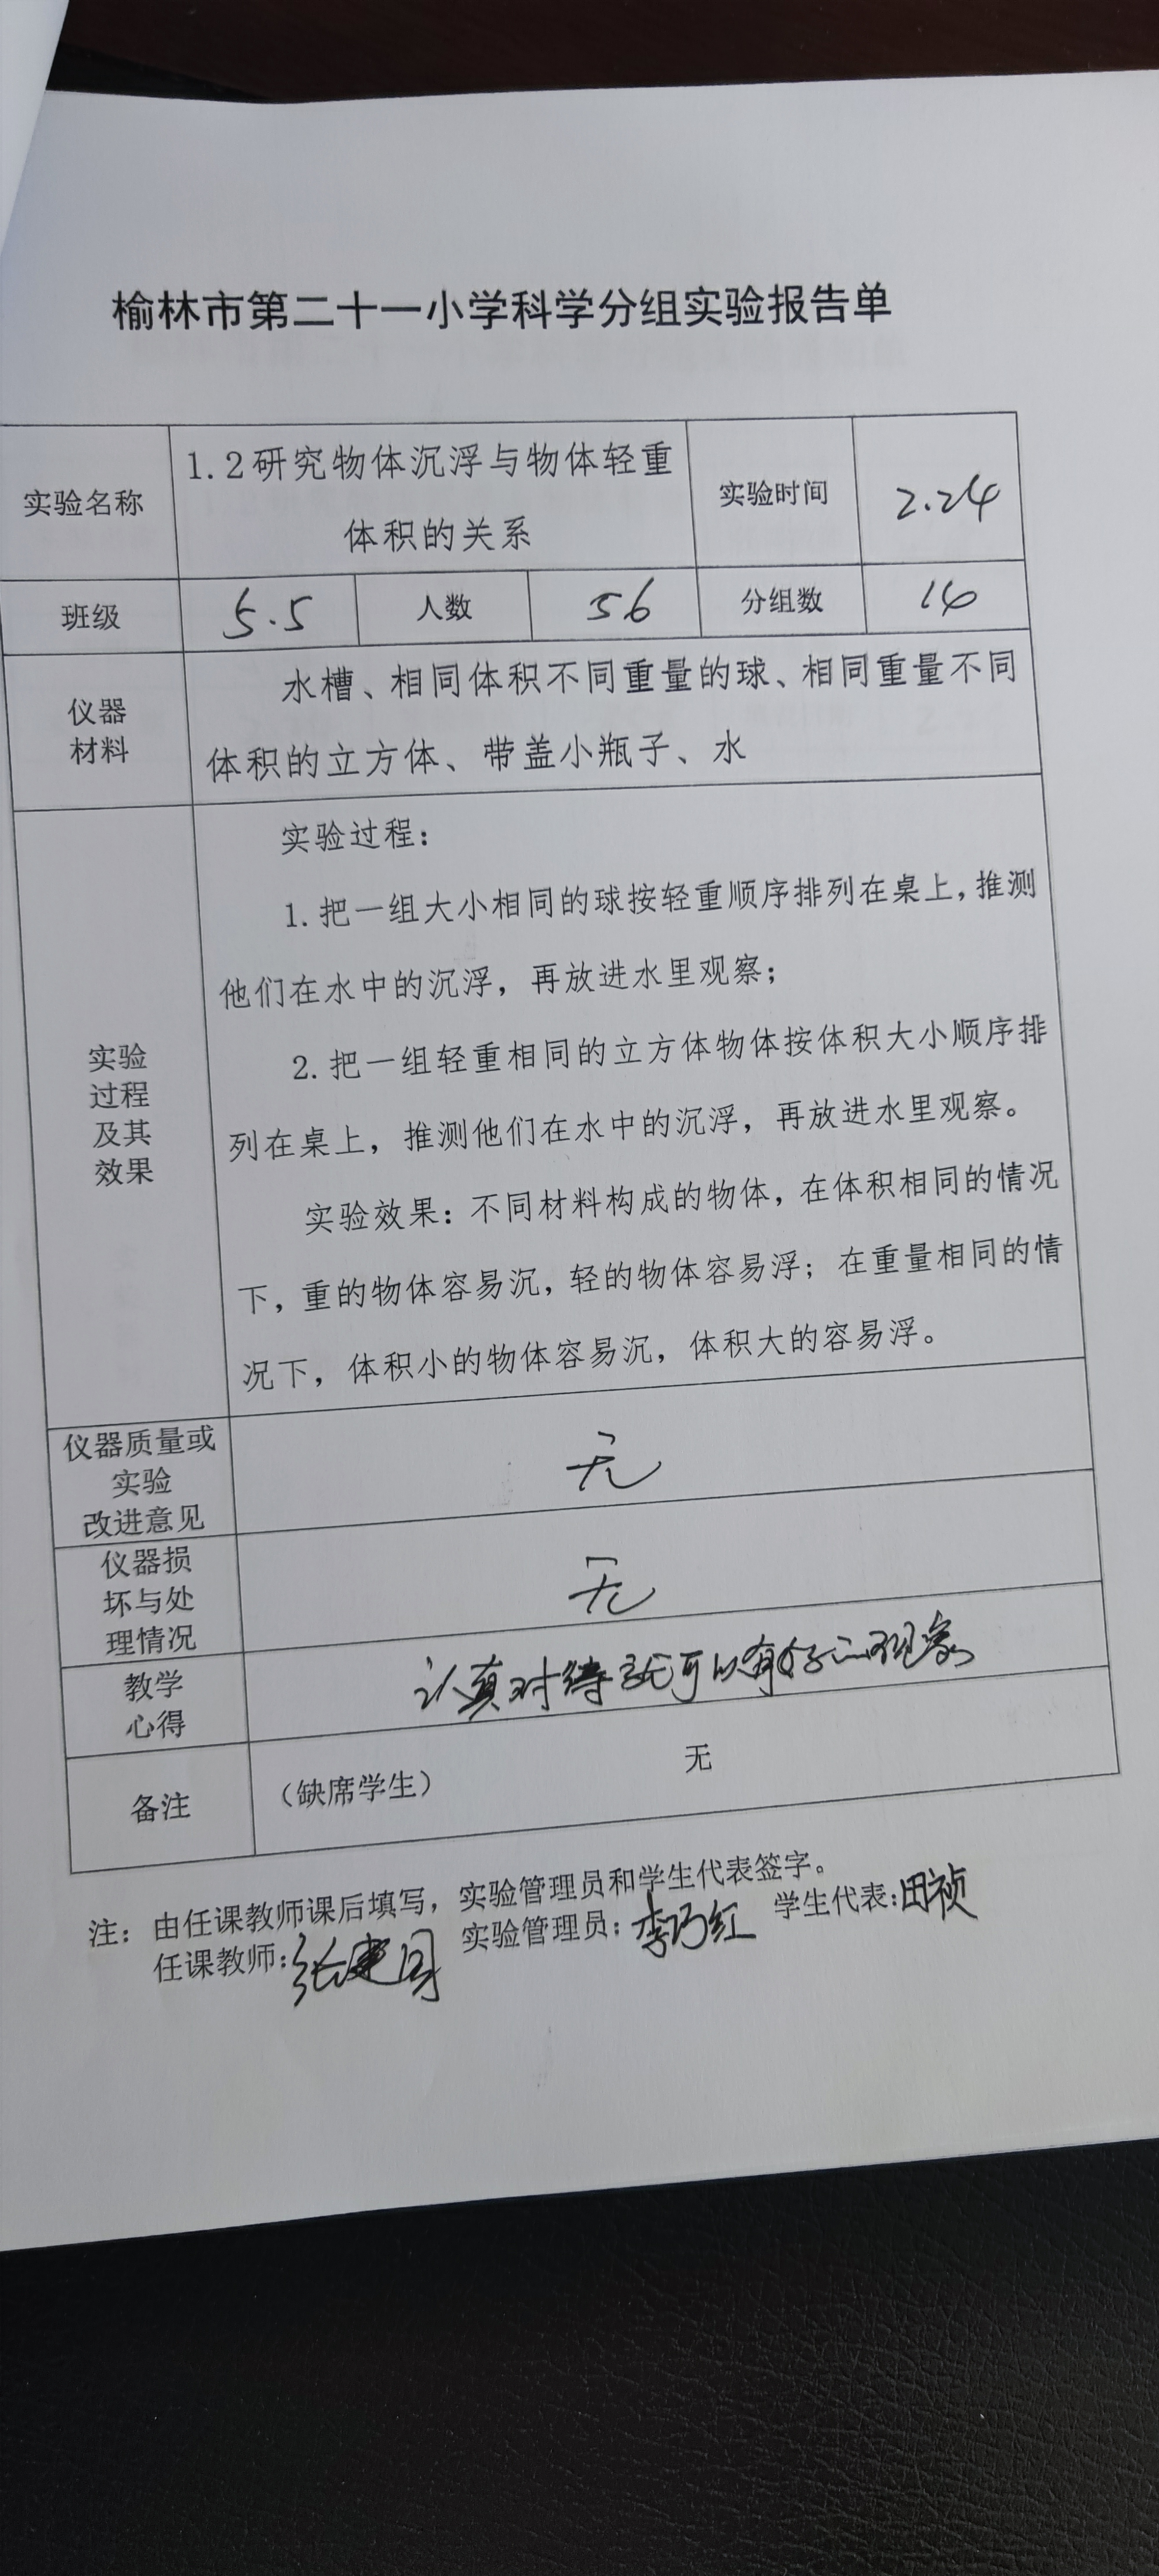 榆林市第二十一小学科学分组实验报告单
实验名称
1.2研究物体沉浮与物体轻重
体积的关系
实验时间
2.24
班级
5.5
人数
56
分组数
14
仪器
材料
水槽、相同体积不同重量的球、相同重量不同
体积的立方体、带盖小瓶子、水
实验
过程
及其
效果
实验过程：
1.把一组大小相同的球按轻重顺序排列在桌上，推测
他们在水中的沉浮，再放进水里观察；
2.把一组轻重相同的立方体物体按体积大小顺序排
列在桌上，推测他们在水中的沉浮，再放进水里观察。
实验效果：不同材料构成的物体，在体积相同的情况
下，重的物体容易沉，轻的物体容易浮；在重量相同的情
况下，体积小的物体容易沉，体积大的容易浮。
仪器质量或
实验
改进意见
无
仪器损
坏与处
理情况
无
教学
心得
认真对待就可以有好的现象
备注
（缺席学生）
无
注：由任课教师课后填写，实验管理员和学生代表签字。
任课教师：张建国 实验管理员：李巧红 学生代表：田祯